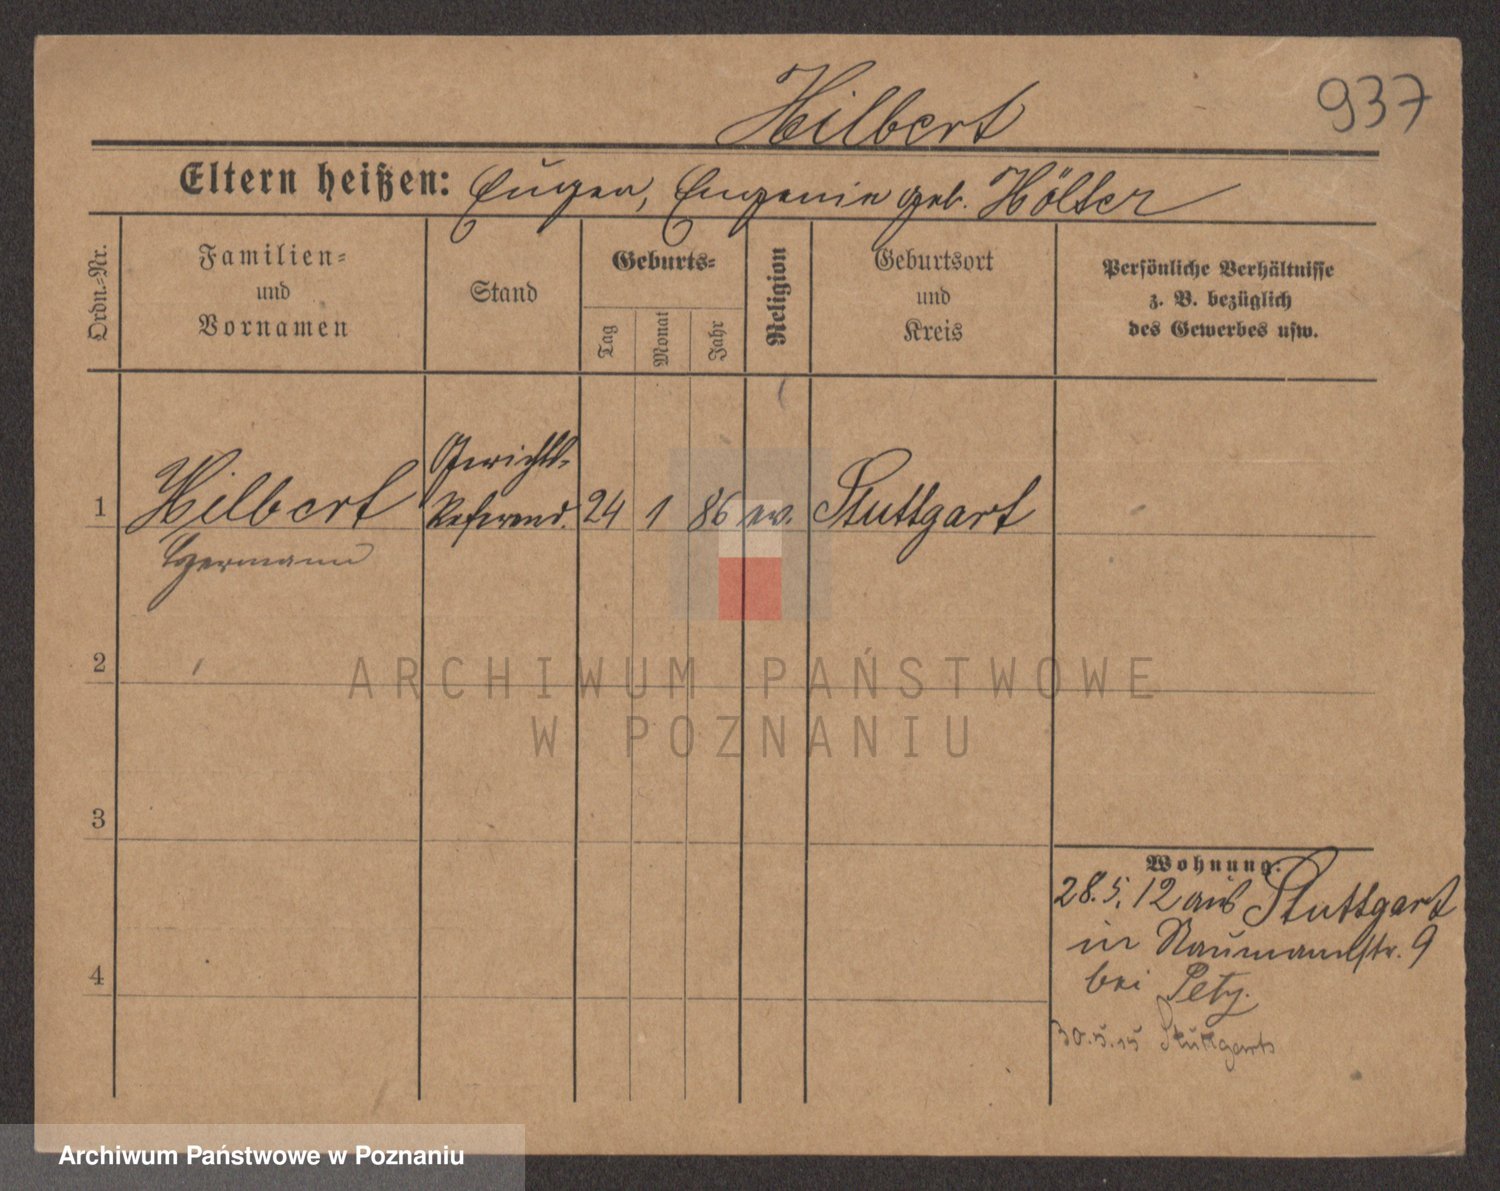 Hilbert
937
Eltern heißen: Eugen, Eugenie geb. Hölter
Ordn.-Nr.
Familien-
und
Vornamen
Stand
Geburts-
Tag
Monat
Jahr
Religion
Geburtsort
und
Kreis
Persönliche Verhältnisse
z. B. bezüglich
des Gewerbes usw.
Gerichts-
1 Hilbert Referend. 24 1 86 ev. Stuttgart
Hermann
2
ARCHIWUM PAŃSTWOWE
W POZNANIU
3
Wohnung:
28.5.12 aus Stuttgart
in Naumannstr. 9
bei
4
30.5.15 Stuttgart
Archiwum Państwowe w Poznaniu